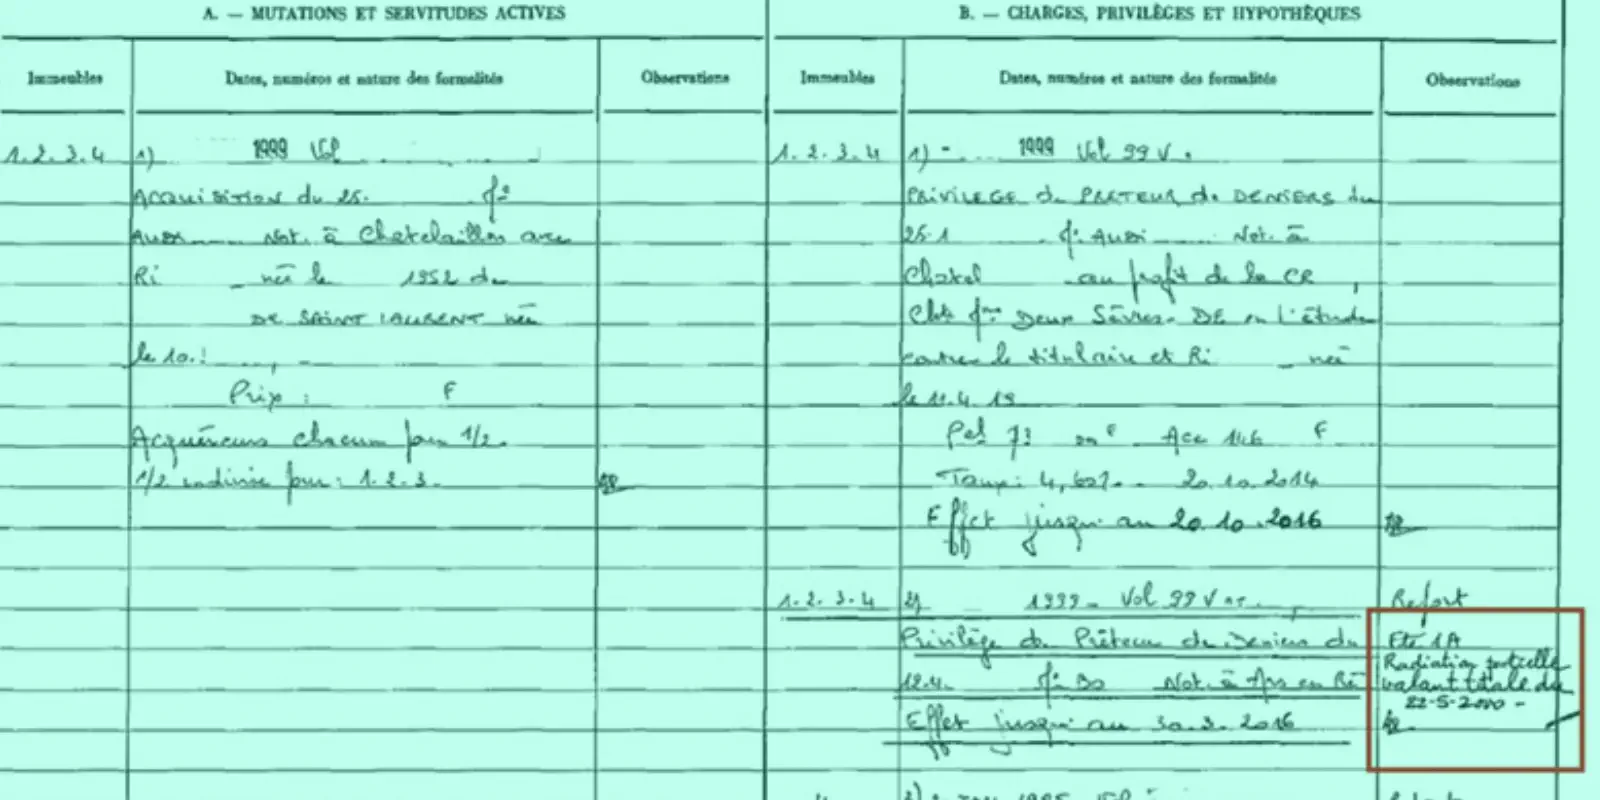 A. — MUTATIONS ET SERVITUDES ACTIVES
Immeubles
Dates, numéros et nature des formalités
Observations
1.2.3.4
1) 1999 Vol
Acquisition du 25.
Not. à Chatelaillon avec
Ri née le 1952 de
DE SAINT LAURENT née
le 10.
Prix : F
Acquéreurs chacun pour 1/2
1/2 indivise pour : 1.2.3.
B. — CHARGES, PRIVILÈGES ET HYPOTHÈQUES
Immeubles
Dates, numéros et nature des formalités
Observations
1.2.3.4
1) 1999 Vol 99 V
PRIVILEGE de PRETEUR de DENIERS du
25.1 Not. à
Chatel au profit de la CR
Deux Sèvres. DE en l'étude
contre le titulaire et Ri née
le 11.4.19
Taux : 4,60%. 20.10.2014
Effet jusqu'au 20.10.2016
1.2.3.4
2) 1999 Vol 99 V
Privilège de Prêteur de Deniers du
12.4. Not. à Ars en Ré
Effet jusqu'au 30.3.2016
Report
Fte 1A
Radiation partielle
valant totale du
22-5-2000 -